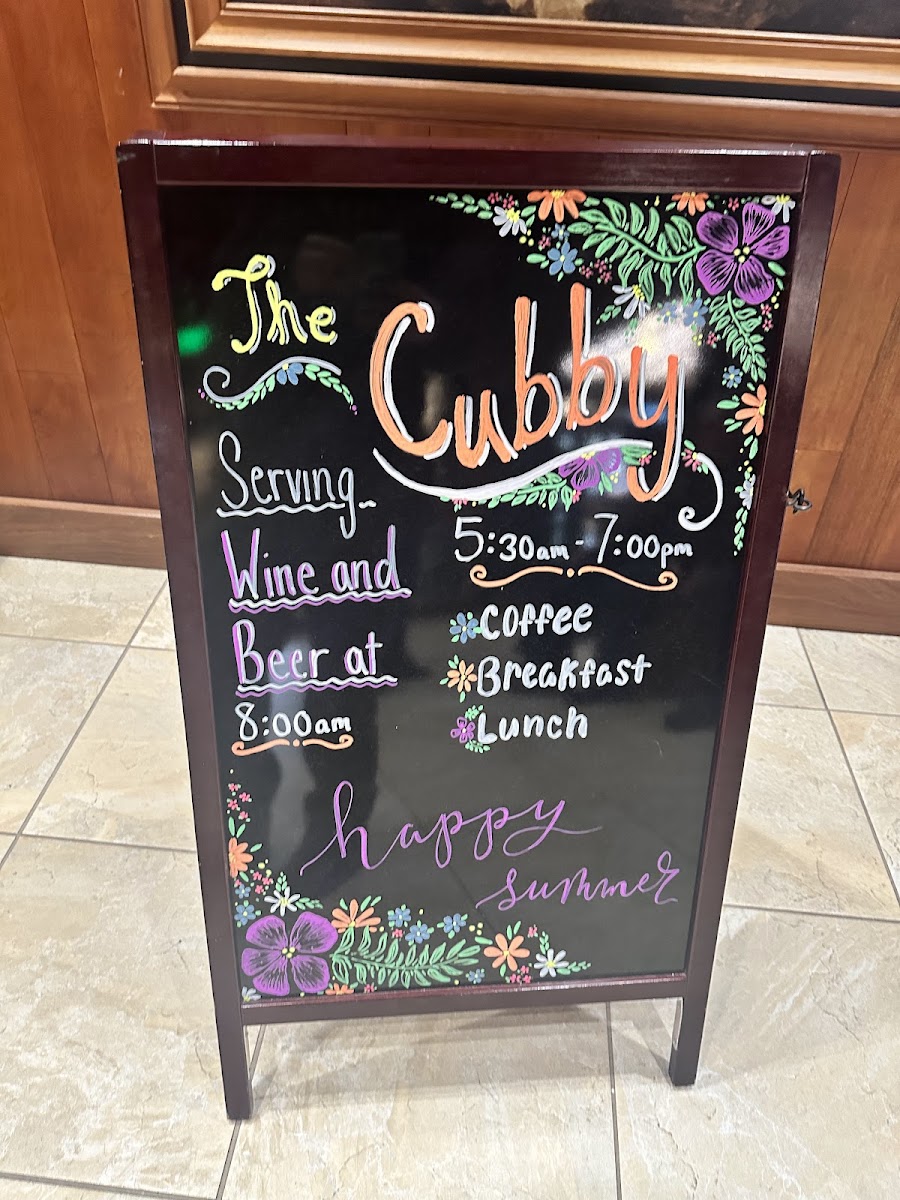 The Cubby
Serving
Wine and
Beer at
8:00am
5:30am - 7:00pm
Coffee
Breakfast
Lunch
happy
summer